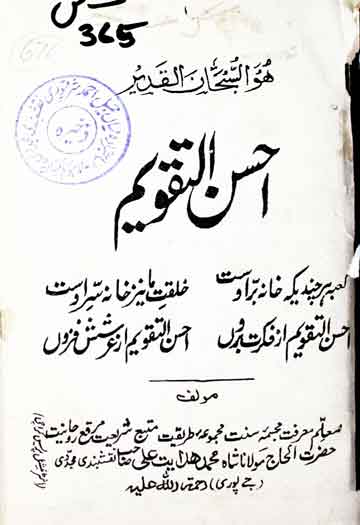 365
ھو السبحان القدیر
احسن التقویم
کعبہ ہر چندیکہ خانہ بر اوست
خلقتِ ما نیز خانہ سِرِ اوست
احسن التقویم از فکرت بروں
احسن التقویم از عرشش فزوں
مولف
معلمِ معرفت مجسمہ سنت مجموعہ طریقت متبع شریعت مرقع روحانیت
حضرت الحاج مولانا شاہ محمد ھدایت علی صاحب نقشبندی مجددی
(جے پوری) رحمۃ اللہ علیہ